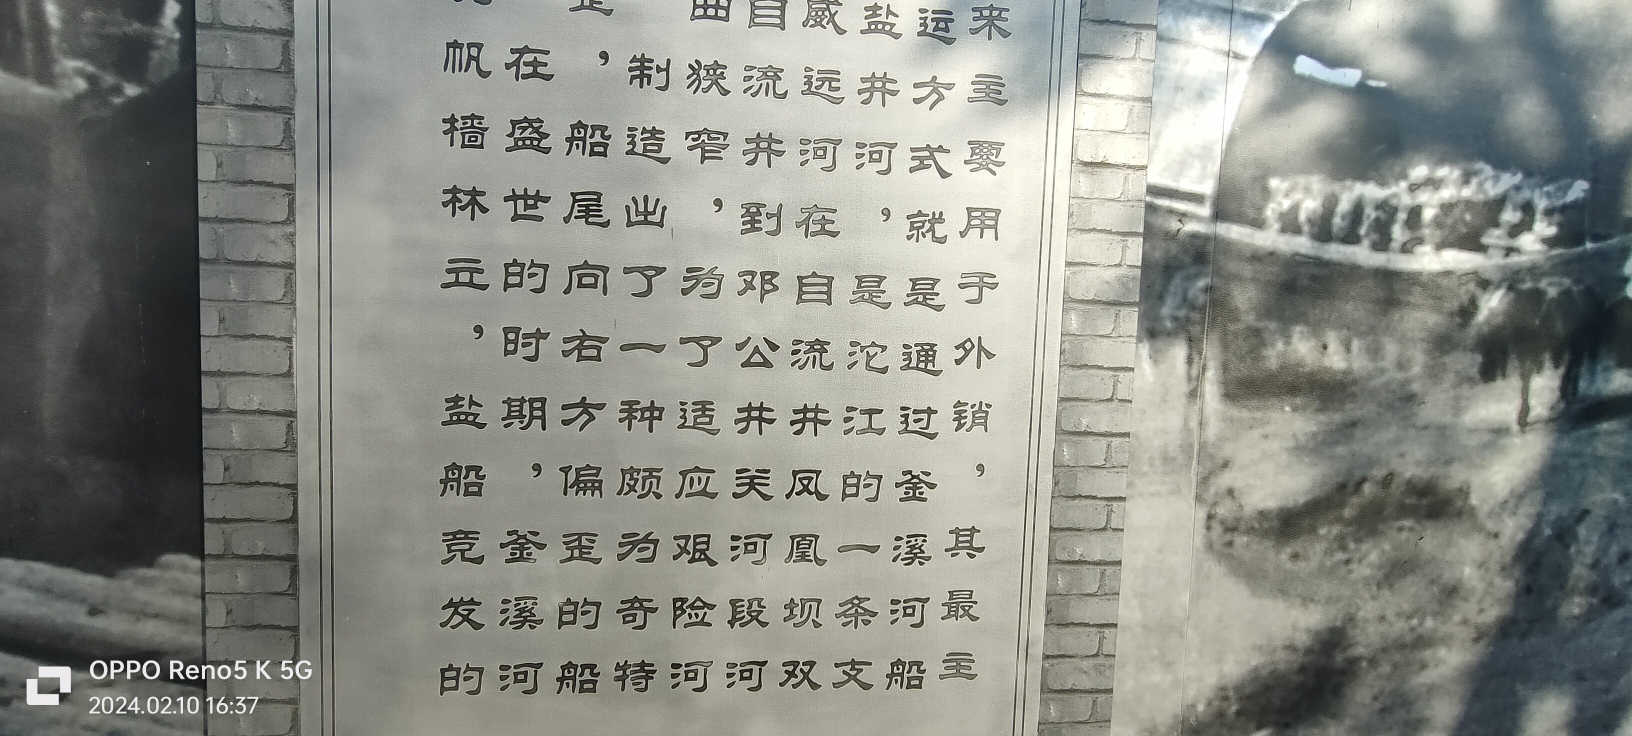 来主要用于外销，其最主
运方式就是通过釜溪河船
盐井河，是沱江的一条支
威远河在自流井凤凰坝双
自流井到邓公井关河段河
曲狭窄，为了适应艰险河
制造出了一种颇为奇特
，船尾向右方偏歪的船
在盛世的时期，釜溪河
帆樯林立，盐船竞发的
OPPO Reno5 K 5G
2024.02.10 16:37